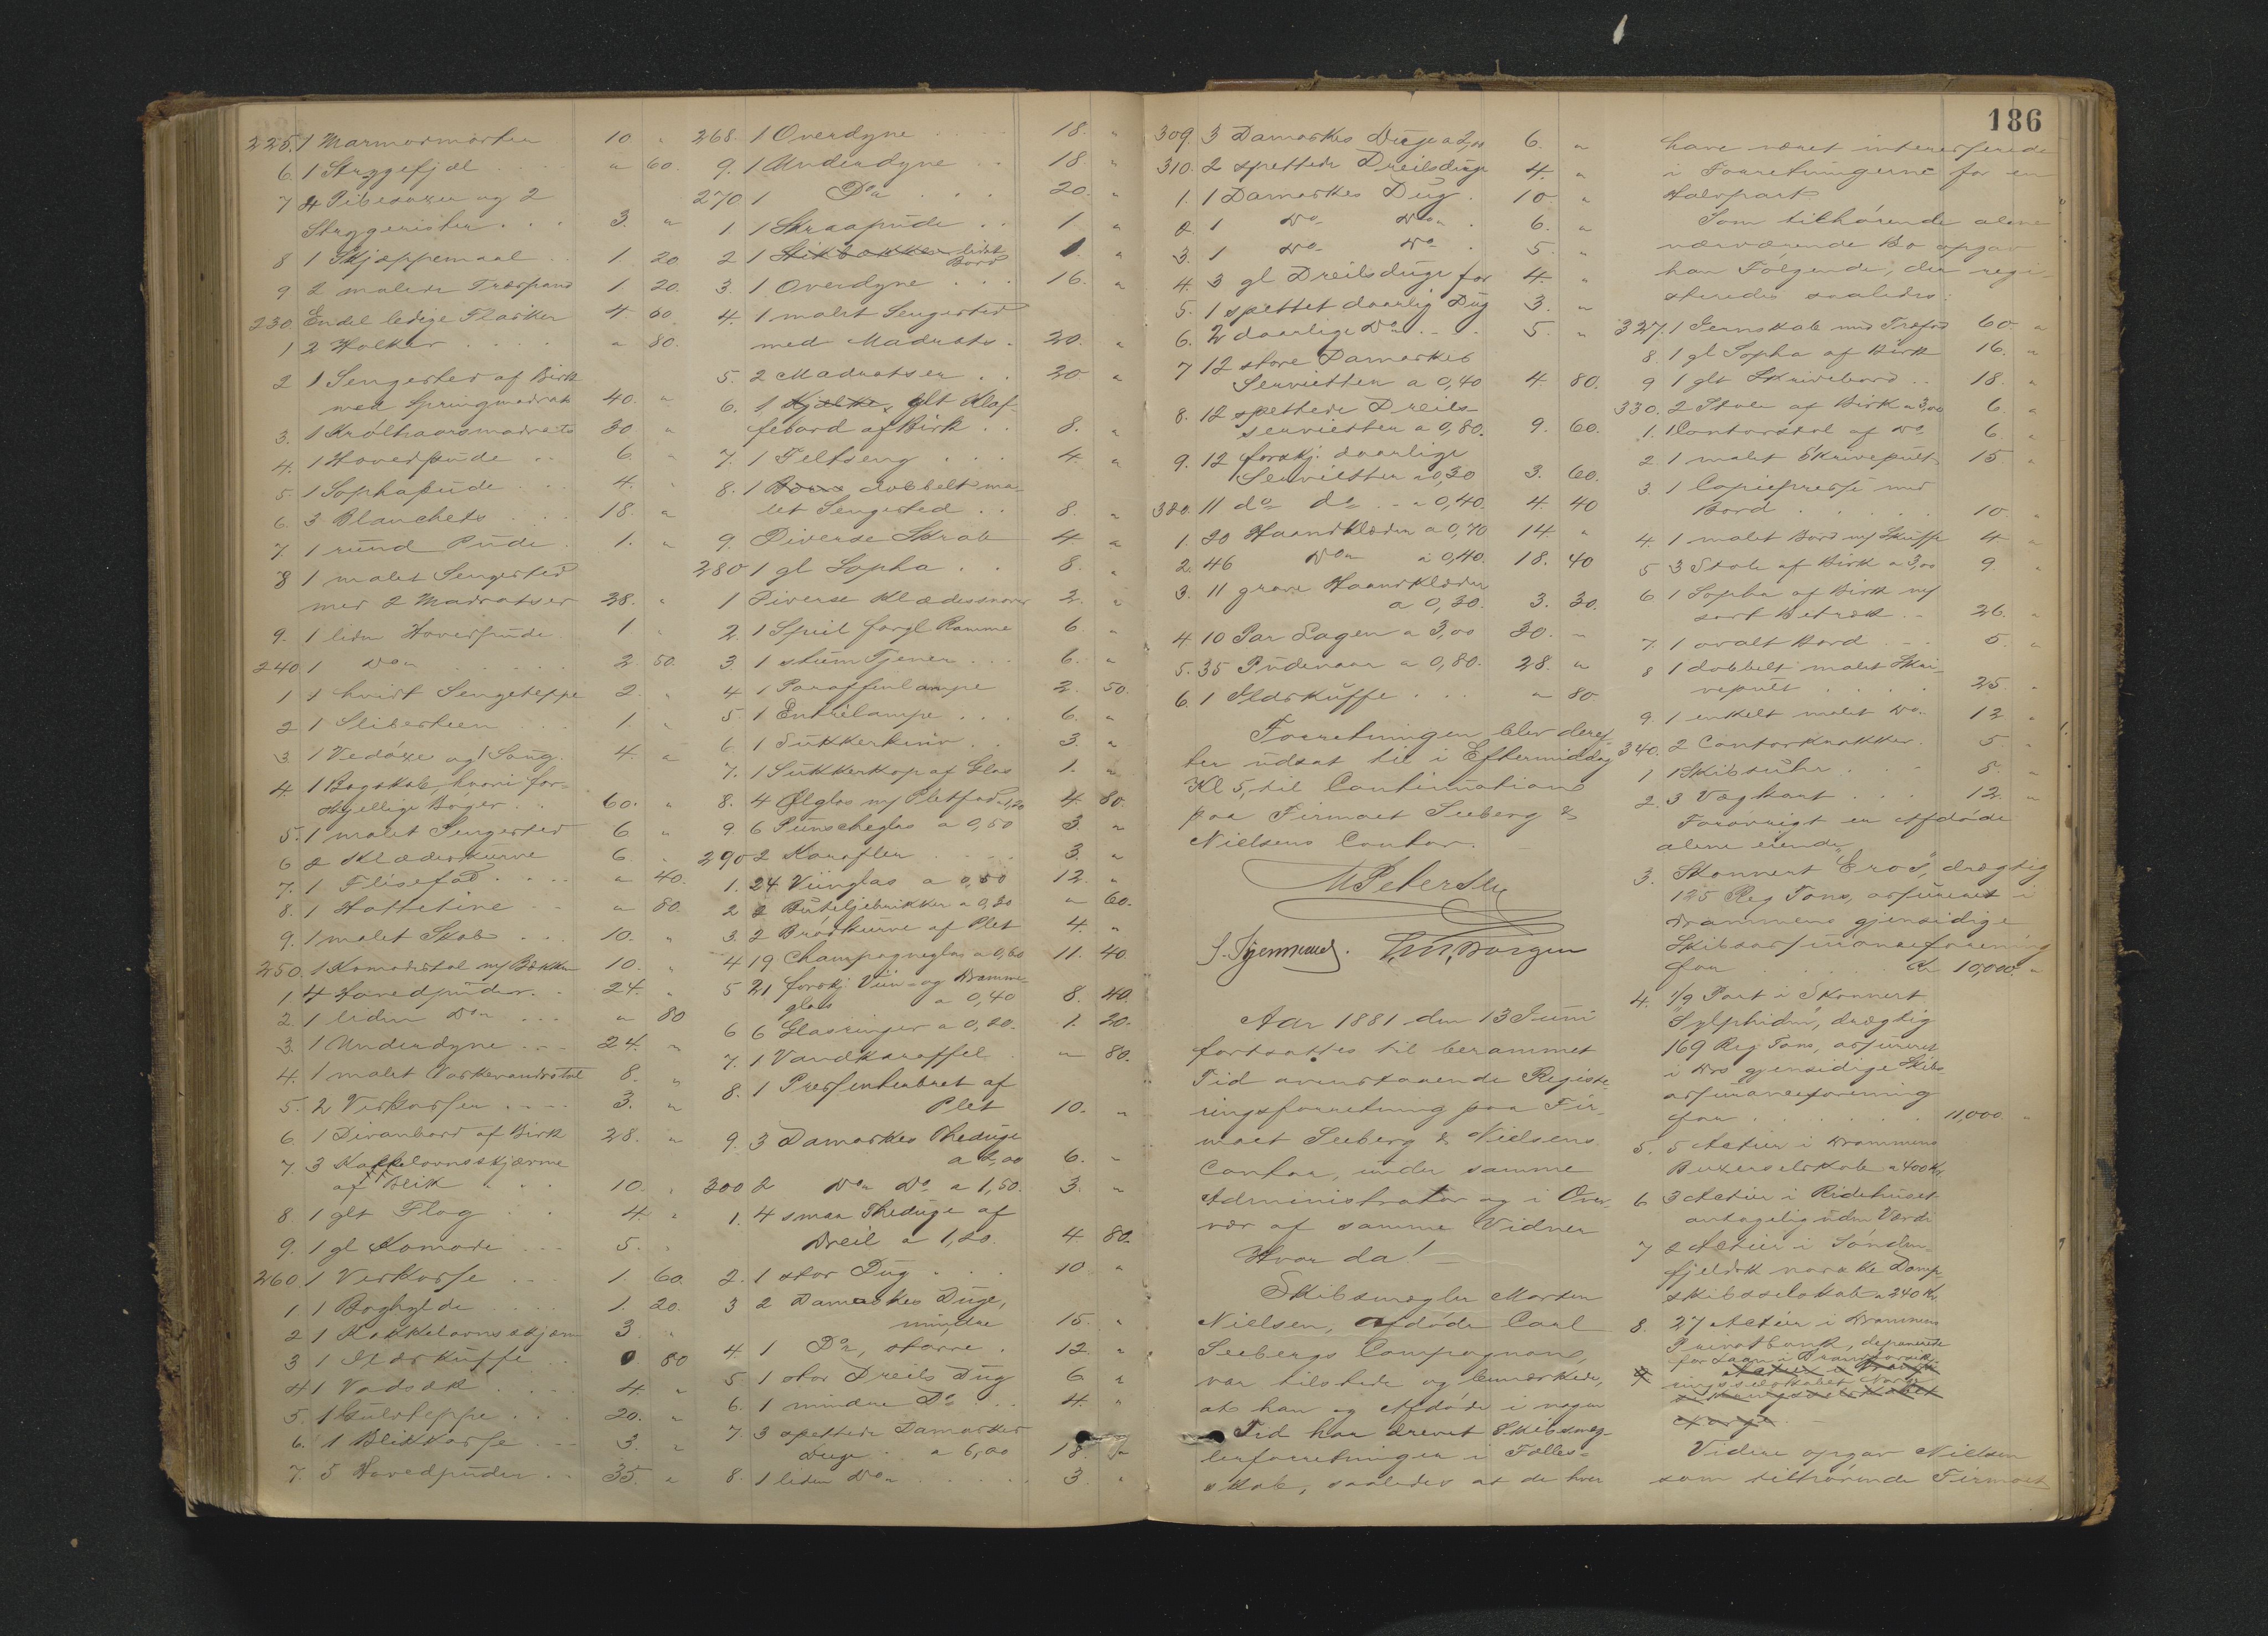 225. 1 Marmormorter 10. "
6. 1 Strygefjæl " 60.
7 4 Pibesaxer og 2
Strygerister 3. "
8 1 Skjæppemaal 1. 20
9 2 malede Træspand 1. 20.
230. Endel ledige Flasker 4. 60
1 2 Holker " 80.
2 1 Sengested af Birk
med Springmadrats 40. "
3. 1 Krølhaarsmadrats 30 "
4. 1 Hovedpude 6. "
5. 1 Sophapude 4. "
6. 3 Blanchets 18. "
7. 1 rund Pude 1. "
8 1 malet Sengested
med 2 Madratser 28. "
9. 1 liden Hovedpude 1. "
240 1 Do " 2. 50.
1 1 hvidt Sengeteppe 2. "
2 1 Slibesteen 1. "
3 1 Vedøxe og 1 Saug. 4. "
4. 1 Bogskab, hvori for-
skjellige Bøger 60. "
5. 1 malet Sengested 6 "
6 2 Klædeskurve 6. "
7. 1 Flisefad " 40.
8. 1 Hattetine " 80.
9. 1 malet Skab 10. "
250. 1 Komodstol m/ Bækken 10. "
1 4 Hovedpuder 24. "
2. 1 liden Do " " 80
3. 1 Underdyne 24. "
4. 1 malet Vaskevandsstol 8. "
5. 2 Vedkasser 3. "
6. 1 Divanbord af Birk 28. "
7. 3 Kakkelovnsskjærme
af Blik 10. "
8. 1 glt Flag 4. "
9. 1 gl Komode 5. "
260 1 Vedkasse 1. 60.
1 1 Boghylde 1. 20.
2 1 Kakkelovnsskjærm 3. "
3 1 Ildskuffe 0 80
4 1 Vadsæk 4. "
5. 1 Gulvteppe 20. "
6. 1 Blikkasse 3. "
7. 5 Hovedpuder 35. "
268. 1 Overdyne 18. "
9. 1 Underdyne 18. "
270 1 Do " 20. "
1 1 Skraapude 1. "
2 1 Stikbækken lidet
Bord 1. "
3. 1 Overdyne 16. "
4. 1 malet Sengested
med Madrats 20. "
5. 2 Madratser 20. "
6. 1 Kjælke, glt Klaf-
febord af Birk 8. "
7. 1 Feltseng 4. "
8. 1 dobbelt ma-
let Sengested 8. "
9. Diverse Skrab 4. "
280 1 gl Sopha 8. "
1 Diverse Klædessnorer 2. "
2. 1 Speil forgl Ramme 6. "
3. 1 stum Tjener 6. "
4 1 Paraffenlampe 2. 50.
5. 1 Entrélampe 6. "
6. 1 Sukkerkniv 3. "
7. 1 Sukkerkop af Glas 1. "
8. 4 Ølglas m/ Pletfod a 1,20 4. 80.
9. 6 Punscheglas a 0,50 3. "
290 2 Karafler 3. "
1. 24 Viinglas a 0,50 12. "
2 2 Buteljebrikker a 0,30 " 60.
3. 2 Brødkurve af Plet 4. "
4 19 Champagneglas a 0,60 11. 40.
5 21 forskj. Viin- og Dramme-
glas a 0,40 8. 40.
6 6 Glasringer a 0,20. 1. 20.
7. 1 Vandkaraffel " 80.
8. 1 Presenterbret af
Plet 10. "
9. 3 Damaskes Theduge
a 2,00 6. "
300 2 Do " Do a 1,50. 3. "
1. 4 smaa Theduge af
Dreil a 1,20. 4 80.
2. 1 stor Dug 10 "
3 2 Damaskes Duge,
mindre 15. "
4. 1 Do ", større 12. "
5 1 stor Dreils Dug 6 "
6. 1 mindre Do 4. "
7. 3 spettede Damaskes
Duge a 6,00 18. "
8. 1 liden Do " 3. "
186
309. 3 Damaskes Duge a 2,00 6. "
310. 2 spettede Dreilsduge 4. "
1. 1 Damaskes Dug 10 "
2. 1 Do Do " 6. "
3. 1 Do Do 5. "
4. 3 gl Dreilsduge for 4. "
5. 1 spettet daarlig Dug 3. "
6. 2 daarlige Do 5. "
7 12 store Damaskes
Servietter a 0,40 4. 80.
8. 12 spettede Dreils
servietter a 0,80. 9. 60.
9. 12 forskj. daarlige
Servietter a 0,30 3. 60.
320. 11 do do " 0,40. 4. 40
1. 20 Haandklæder a 0,70 14 "
2. 46 Do " a 0,40. 18. 40
3. 11 grove Haandklæder
a 0,30. 3. 30.
4 10 Par Lagen a 3,00 30. "
5. 35 Pudevaar a 0,80. 28. "
6. 1 Ildskuffe " 80
Forretningen blev deref-
ter udsat til i Eftermiddag
Kl 5, til Continuation
paa Firmaet Seeberg &
Nielsens Contor.
M Petersen
Aar 1881 den 13 Juni
fortsattes til berammet
Tid ovenstaaende Registe-
ringsforretning paa Fir-
maet Seeberg & Nielsens
Contor, under samme
Administrator og i Over-
vær af samme Vidner
Hvor da! —
Skibsmægler Morten
Nielsen, Afdøde Carl
Seebergs Compagnon,
var tilstede og bemærkede,
at han og Afdøde i nogen
Tid har drevet Skibsmæg-
lerforretninger i Fælles-
skab, saaledes at de hver
have været interesserede
i Forretningerne for en
Halvpart
Som tilhørende alene
nærværende Bo opgav
han Følgende, der regi-
streredes saaledes:
327. 1 Jernskab med Træfod 60 "
8. 1 gl Sopha af Birk 16. "
9 1 glt Skrivebord 18. "
330. 2 Stole af Birk a 3,00 6. "
1. 1 Contorstol af Do 6. "
2 1 malet Skrivepult 15 "
3. 1 Copiepresse med
Bord 10. "
4. 1 malet Bord m/ Skuffe 4 "
5 3 Stole af Birk a 3,00 9. "
6 1 Sopha af Birk m/
sort Betræk 26. "
7. 1 ovalt Bord 5. "
8 1 dobbelt malet Skri-
vepult 25. "
9. 1 enkelt malet Do. 12 "
340. 2 Contorkrakker 5 "
1 1 Skibsuhr 8. "
2. 3 Vægkart 12 "
Forøvrigt er Afdøde
alene eiende
3. Skonnert "Eros", drægtig
125 Reg Tons, assureret i
Drammens gjensidige
Skibsassuranceforening
for Kr 10,000. "
4. 1/9 Part i Skonnert
"Sylphiden", drægtig
169 Reg Tons, assureret
i Dos gjensidige Skibs
assuranceforening
for 11,000 "
5. 5 Actier i Drammens
Buxerselskab a 400 Kr
6 3 Actier i Ridehuset
antagelig uden Værdi
7 2 Actier i Sønden-
fjeldsk norske Damp-
skibsselskab a 240 Kr
8. 27 Actier i Drammens
Privatbank, deponerede
Norge
Videre opgav Nielsen
som tilhørende Firmaet